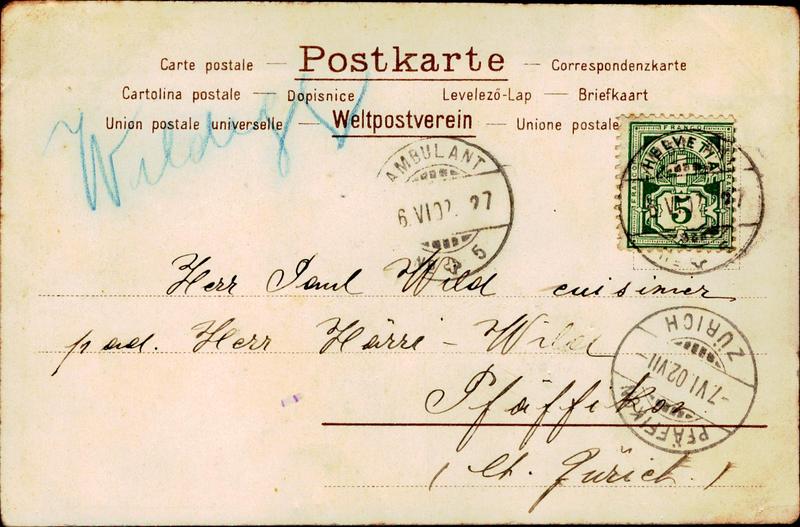 Postkarte
Carte postale — — Correspondenzkarte
Cartolina postale — Dopisnice Levelező-Lap — Briefkaart
Union postale universelle — Weltpostverein — Unione postale
FRANCO
HELVETIA
FRANCO
5
AMBULANT
6.VI.02. 27
5
VI 27
Herr Paul Wild cuisinier
pad. Herr Härri - Wild
Pfäffikon
(Ct. Zürich.)
ZÜRICH
-7.VI.02.VII-
PFÄFFIKON